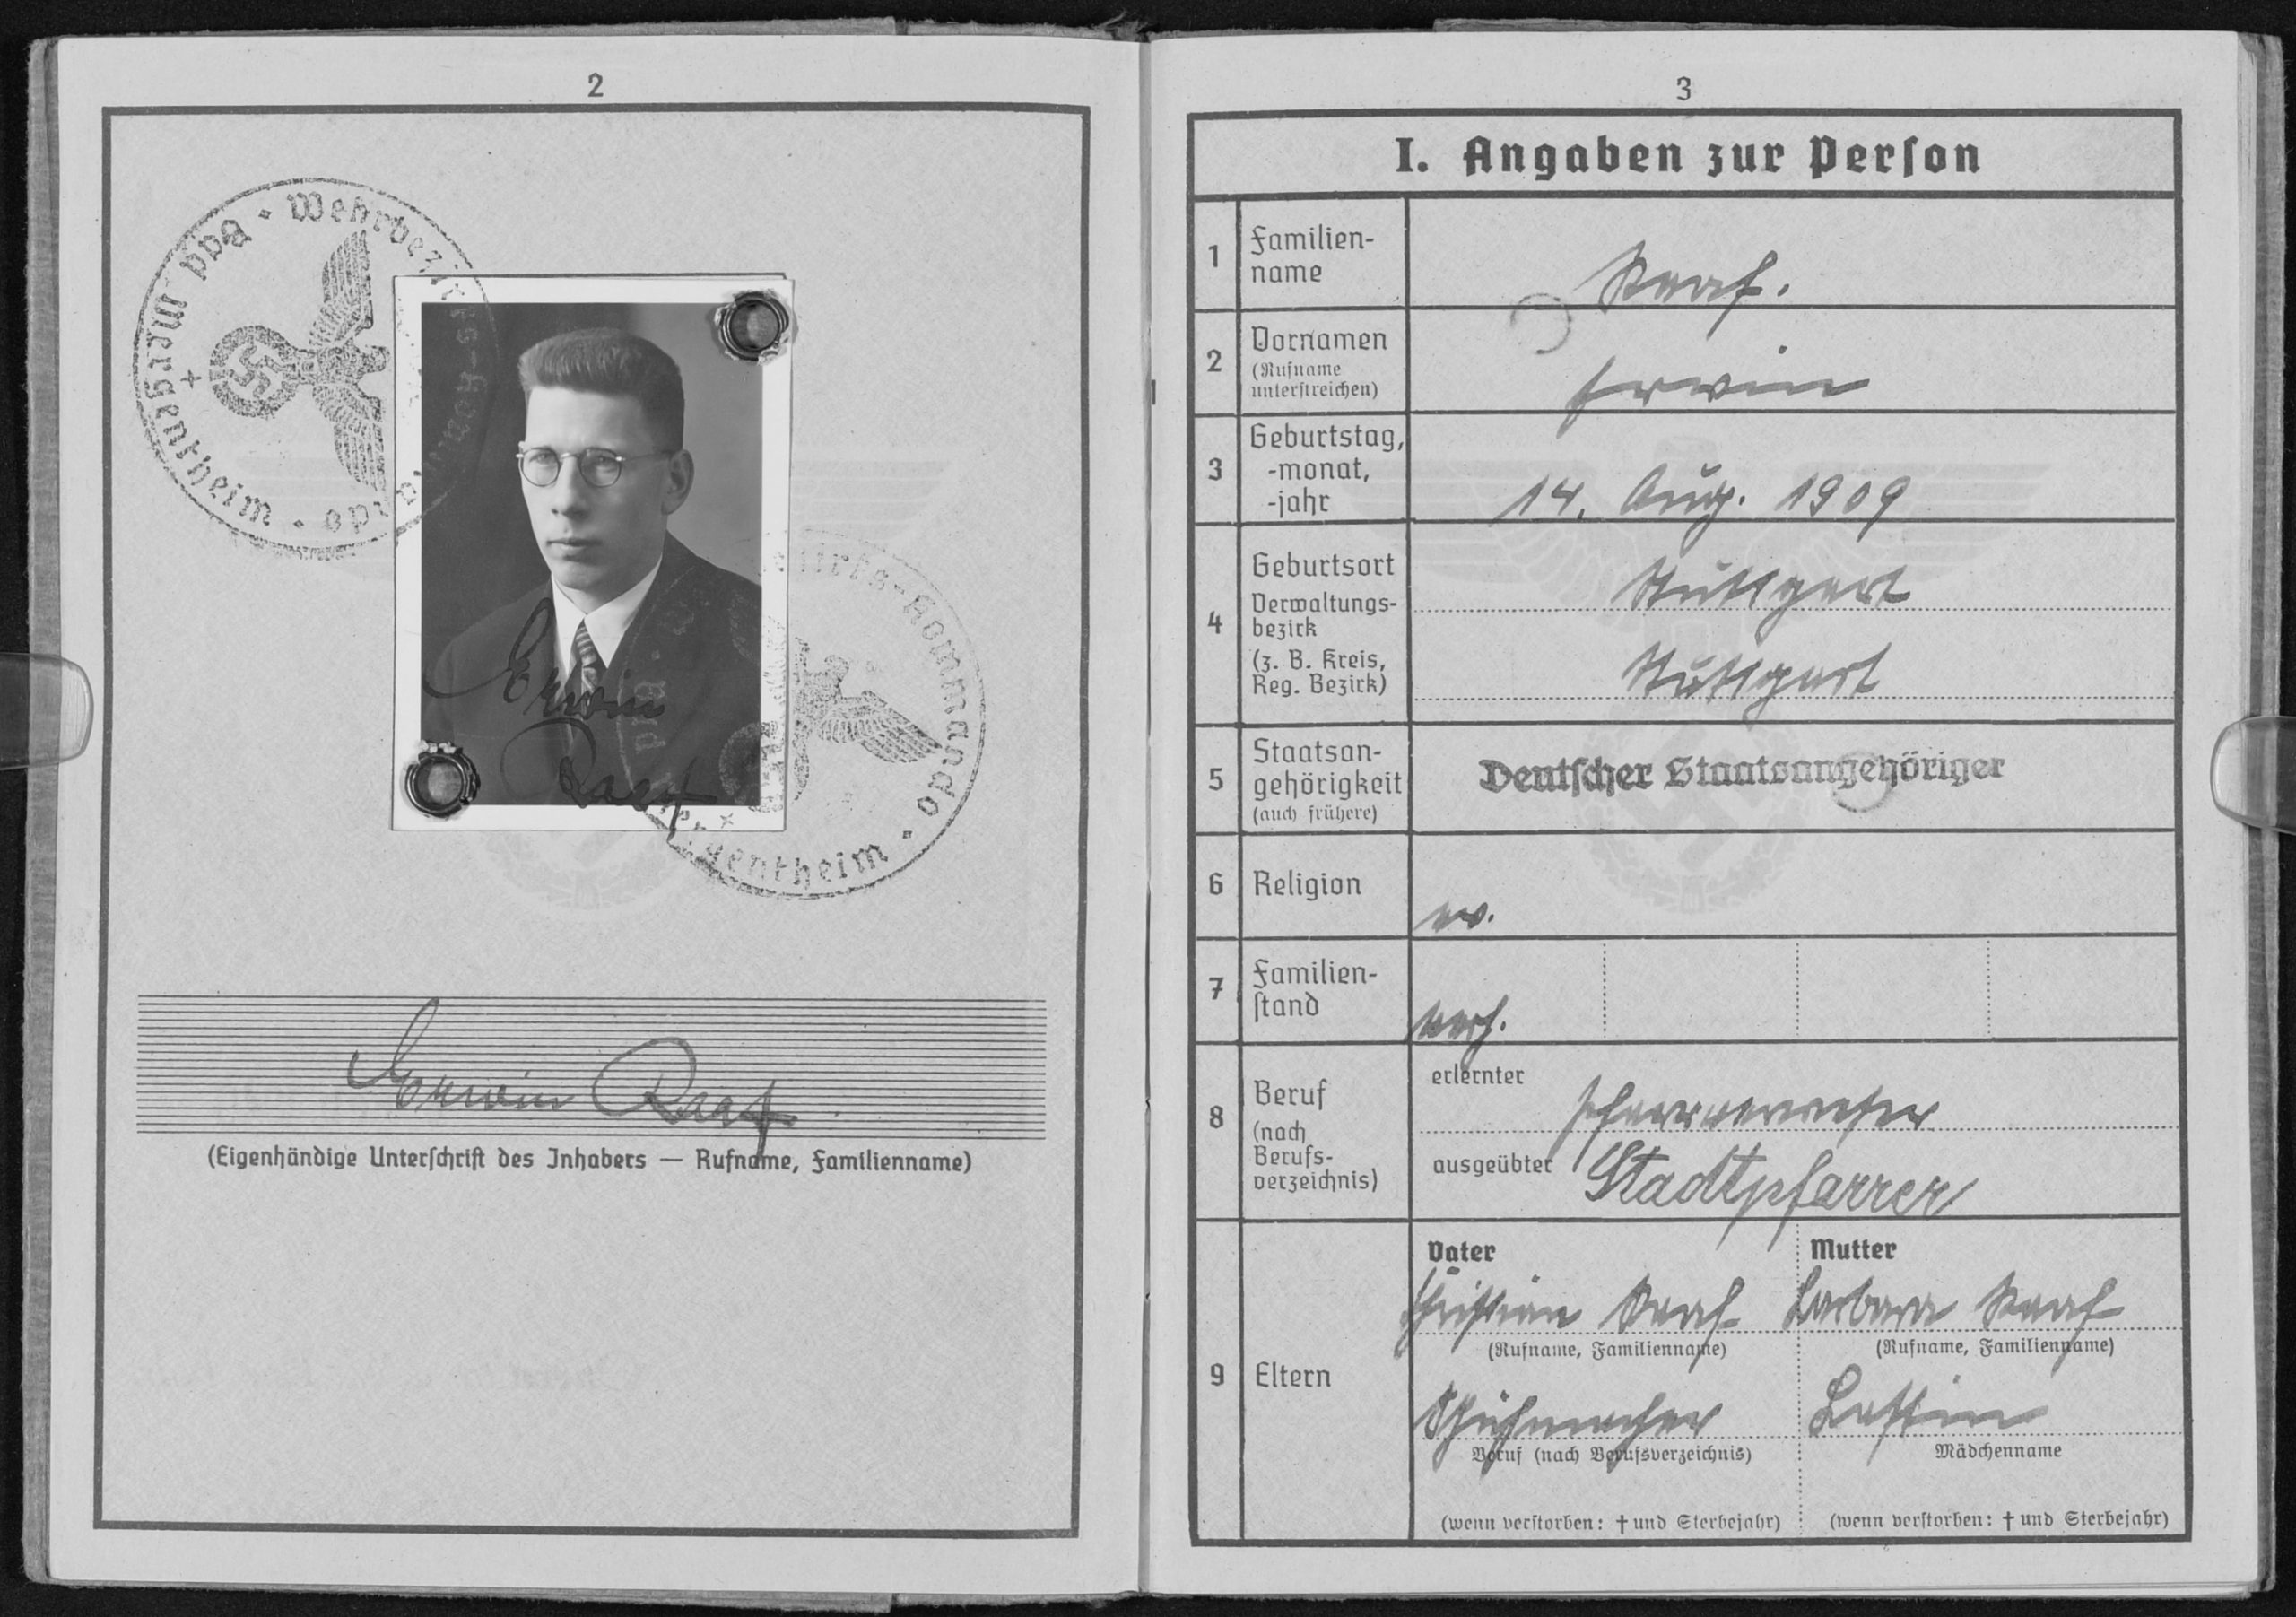 2
Bad Mergentheim · Wehrbezirks-Kommando
Erwin
Raaf
Bad Mergentheim · Wehrbezirks-Kommando
Erwin Raaf
(Eigenhändige Unterſchrift des Inhabers — Rufname, Familienname)
3
I. Angaben zur Perſon
1 Familien-
name
Raaf.
2 Vornamen
(Rufname
unterſtreichen)
Erwin
3 Geburtstag,
-monat,
-jahr
14. Aug. 1909
4 Geburtsort
Verwaltungs-
bezirk
(z. B. Kreis,
Reg. Bezirk)
Stuttgart
Stuttgart
5 Staatsan-
gehörigkeit
(auch frühere)
Deutſcher Staatsangehöriger
6 Religion
ev.
7 Familien-
ſtand
verh.
8 Beruf
(nach
Berufs-
verzeichnis)
erlernter
Pfarrverweser
ausgeübter
Stadtpfarrer
9 Eltern
Vater
Christian Raaf
(Rufname, Familienname)
Schuhmacher
Beruf (nach Berufsverzeichnis)
(wenn verſtorben: † und Sterbejahr)
Mutter
Barbara Raaf
(Rufname, Familienname)
Mädchenname
(wenn verſtorben: † und Sterbejahr)